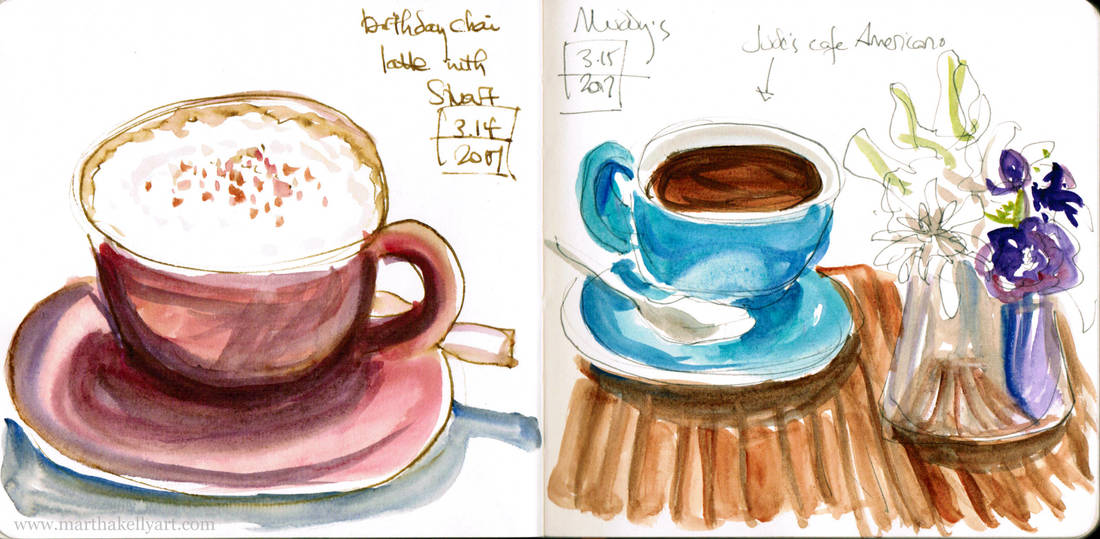 birthday chai
latte with
Stuart
3.14
2017
Muddy's
3.15
2017
cafe Americano
www.marthakellyart.com